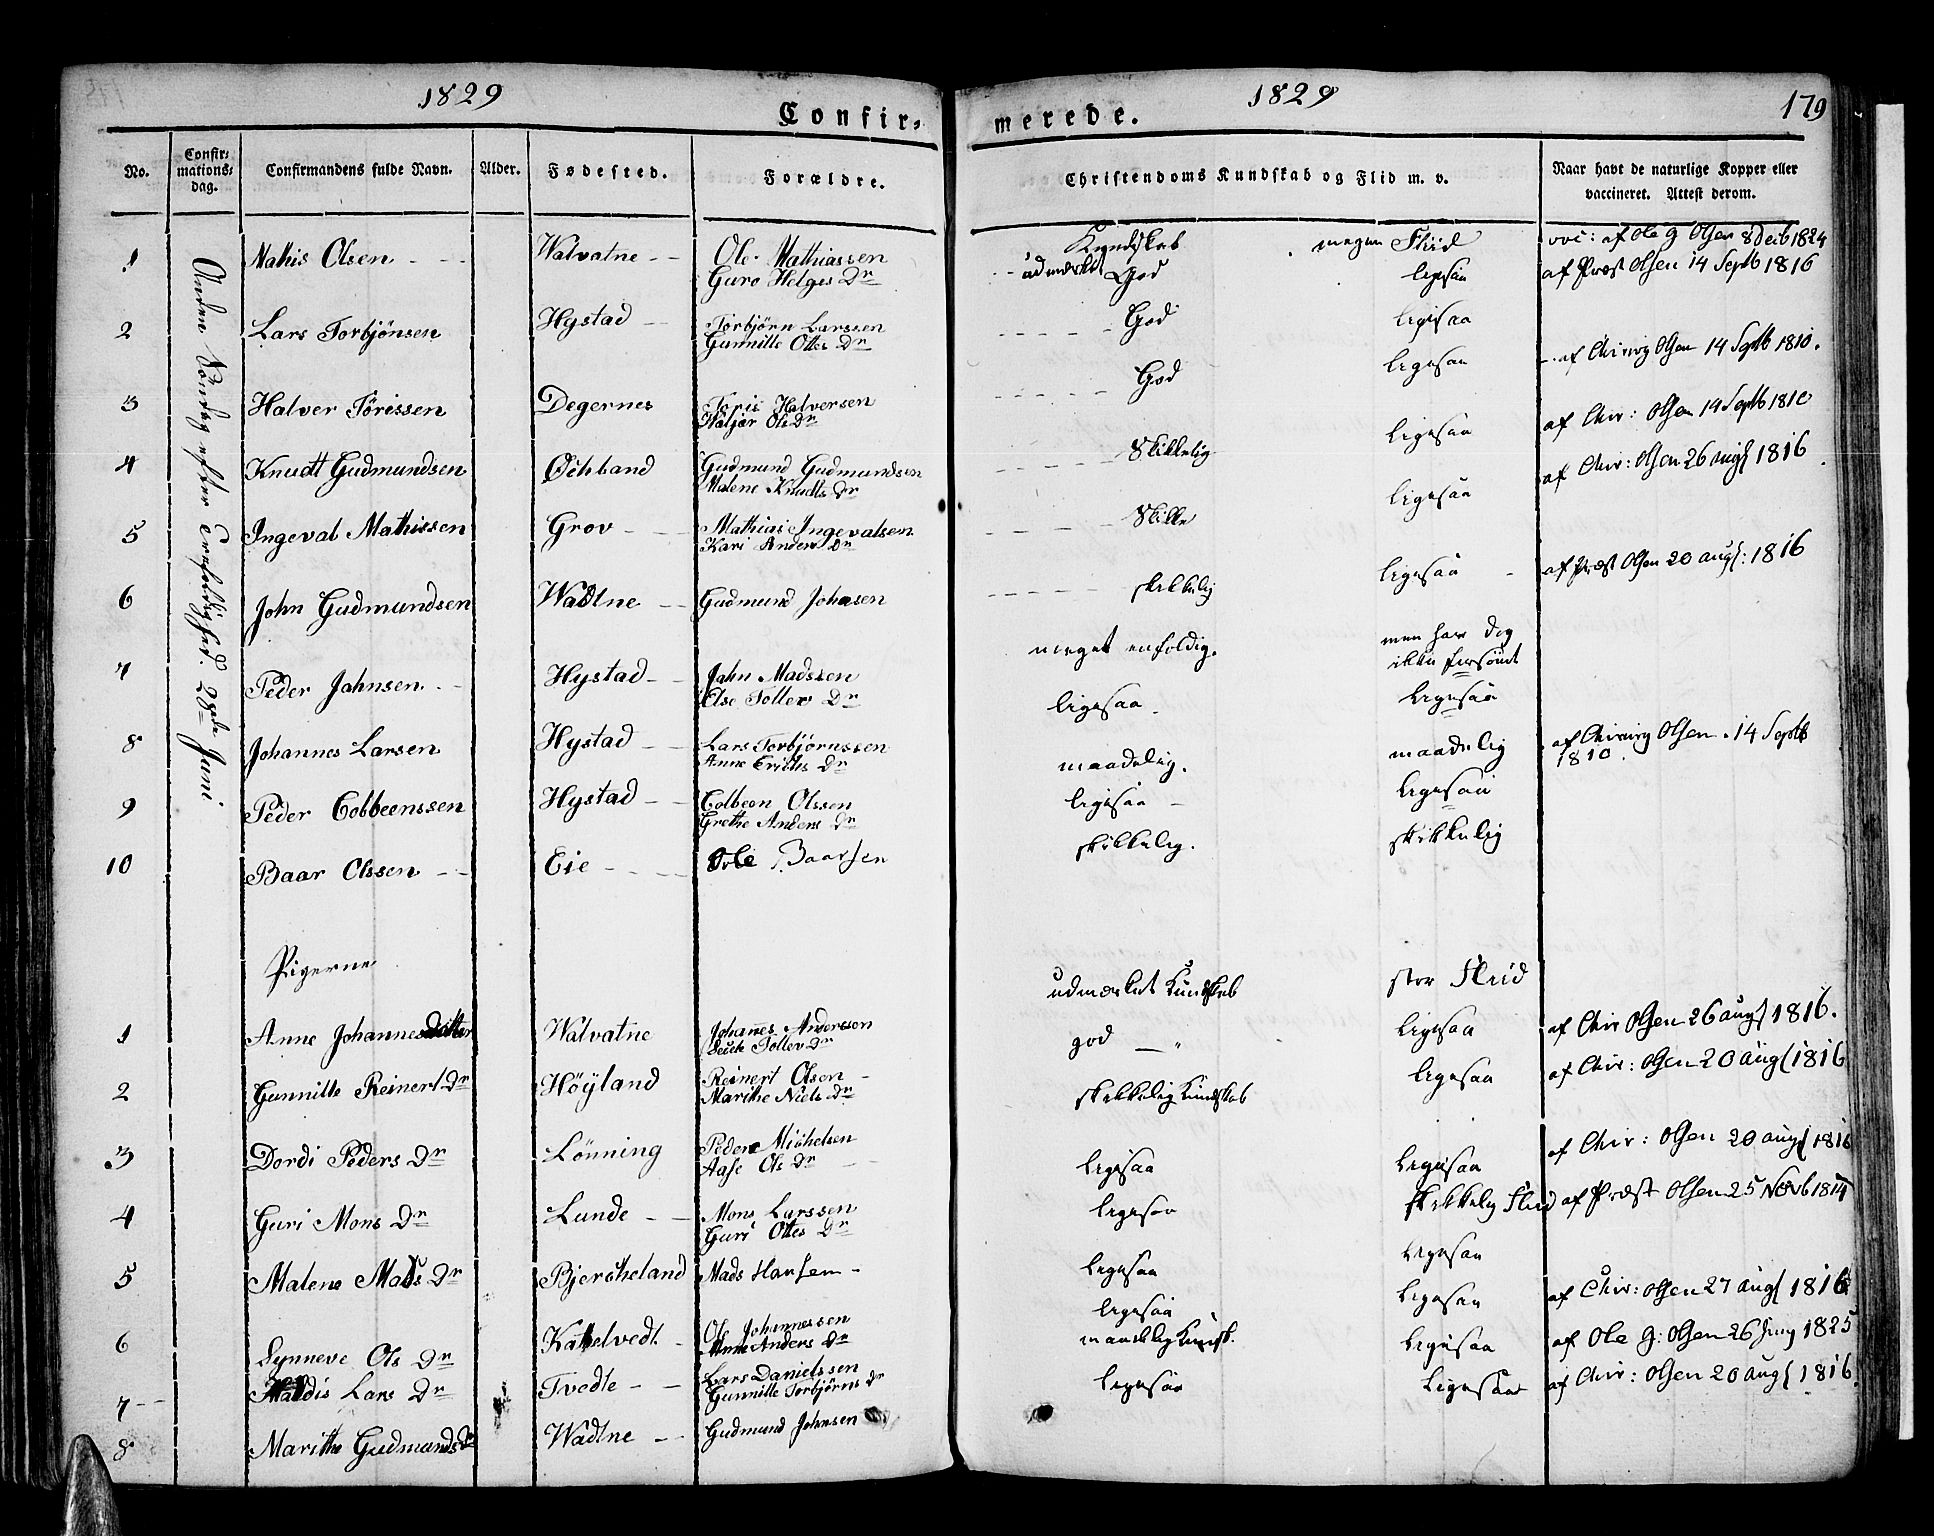 1829
Confir-
No.
Confir-
mations-
dag.
Confirmandens fulde Navn.
Alder.
Fødested.
Forældre.
Anden Søndag efter Trefoldighed. 28de Juni
1 Mathis Olsen Walvatne Ole Mathiassen
Guro Helges Dr
2 Lars Torbjönsen Hystad Torbjörn Larssen
Gunnille Ottes Dr
3 Halver Törissen Degernes Toris Halversen
Ols Dr
4 Knudt Gudmundsen Öchland Gudmund Gudmundsen
Malene Knudts Dr
5 Ingeval Mathissen Grov Mathias Ingevalsen
Kari Anders Dr
6 John Gudmundsen Wadtne Gudmund Johnsen
7 Peder Jahnsen Hystad Jahn Madssen
Else Tollev Dr
8 Johannes Larsen Hystad Lars Torbjörnssen
Anne Erichs Dr
9 Peder Colbeenssen Hystad Colbeen Olssen
Grethe Anders Dr
10 Baar Olssen Eie Ole Baarsen
Pigerne
1 Anne Johannesdatter Walvatne Johannes Anderssen
Tollev Dr
2 Gunnille Reinert Dr Höyland Reinert Olsen
Marithe Niels Dr
3 Dordi Peders Dr Lönning Peder Michelsen
Aase Ols Dr
4 Guri Mons Dr Lunde Mons Larssen
Guri Ottes Dr
5 Malene Mads Dr Bjercheland Mads Hansen
6 Synneve Ols Dr Katelvedt Ole Johannessen
Anne Anders Dr
7 Haldis Lars Dr Tvedte Lars Danielssen
Gunnille Torbjörns Dr
8 Marithe Gudmunds Dr Wadtne Gudmund Johnsen
1829
179
merede.
Christendoms Kundskab og Flid m. v.
Naar havt de naturlige Kopper eller
vaccineret. Attest derom.
Kundskab megen Fliid vac: af Ole G Olsen 8 Decb 1824
udmærket God ligesaa af Præst Olsen 14 Septb 1816
God ligesaa
God ligesaa af Chirurg Olsen 14 Septb 1810.
ligesaa af Chir: Olsen 14 Septb 1810
Skikkelig af Chir: Olsen 26 augs 1816
ligesaa
Skikke
ligesaa af Præst Olsen 20 augs: 1816
skikkelig
meget enfoldig. men har dog
ikke forsömt
ligesaa ligesaa
maadelig. maadelig af Chirurg Olsen. 14 Septb
1810.
ligesaa ligesaa
skikkelig. skikkelig
udmærket Kundskab stor Fliid
god ligesaa af Chir Olsen 26 augs 1816.
ligesaa af Chir: Olsen 20 augs 1816
skikkelig Kundskab
ligesaa ligesaa af Chir: Olsen 20 augs 1816
ligesaa skikkelig Fliid af Præst Olsen 25 Novb 1814
ligesaa ligesaa
ligesaa ligesaa af Chir: Olsen 27 augs 1816
maadelig Kundsk. ligesaa af Ole G: Olsen 26 Juny 1825
ligesaa ligesaa af Chir: Olsen 20 augs 1816.